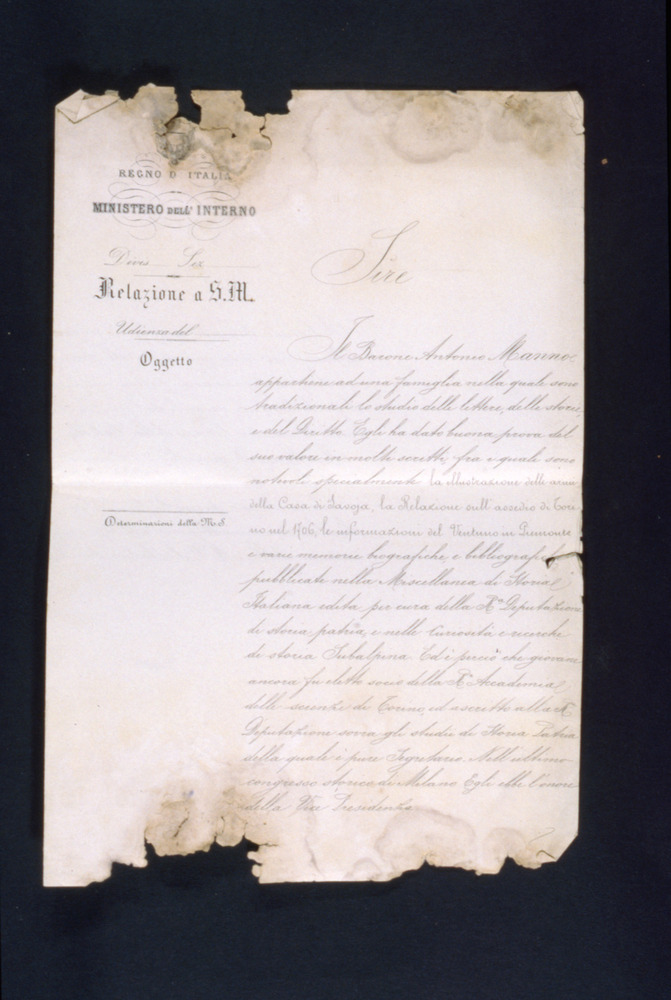 REGNO D'ITALIA
MINISTERO DELL' INTERNO
Divis Sez
Relazione a S. M.
Udienza del
Oggetto
Determinazioni della M. S.
Sire
Il Barone Antonio Manno
appartiene ad una famiglia nella quale sono
tradizionali lo studio delle lettere, delle storie
e del Diritto. Egli ha dato buona prova del
suo valore in molti scritti, fra i quali sono
notevoli specialmente la illustrazione delle armi
della Casa di Savoja, la Relazione sull'assedio di Tori
no nel 1706, le informazioni del Ventuno in Piemonte
e varie memorie biografiche e bibliografiche
pubblicate nella Miscellanea di Storia
Italiana edita per cura della Rª Deputazione
di storia patria, e nelle Curiosità e ricerche
di storia Subalpina. Ed è perciò che giovane
ancora fu eletto socio della R. Accademia
delle scienze di Torino, ed ascritto alla R.
Deputazione sovra gli studi di Storia Patria
della quale è pure Segretario. Nell'ultimo
congresso storico di Milano Egli ebbe l'onore
della Vice Presidenza